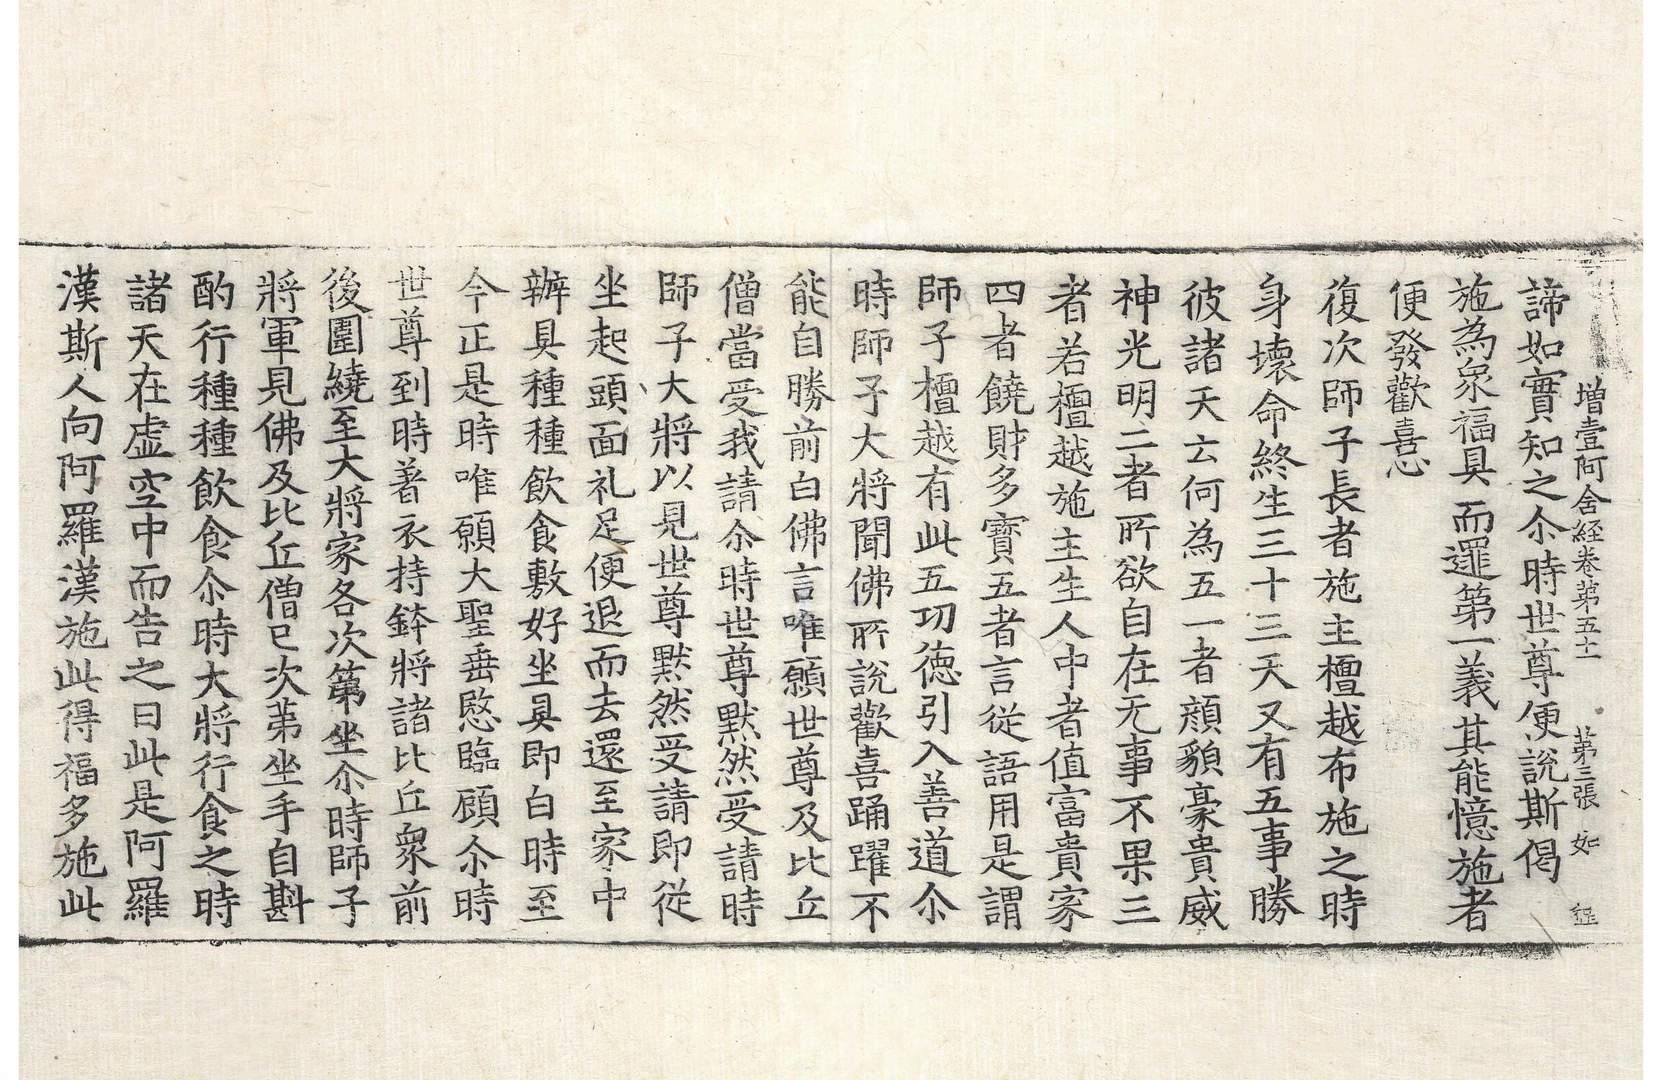 増壹阿含経卷第五十一 第三張 如
諦如實知之尒時世尊便說斯偈
施為衆福具 而逮第一義 其能憶施者
便發歡喜心
復次師子長者施主檀越布施之時
身壞命終生三十三天又有五事勝
彼諸天云何為五一者顏貌豪貴威
神光明二者所欲自在无事不果三
者若檀越施主生人中者值富貴家
四者饒財多寶五者言從語用是謂
師子檀越有此五功德引入善道尒
時師子大將聞佛所說歡喜踊躍不
能自勝前白佛言唯願世尊及比丘
僧當受我請尒時世尊默然受請時
師子大將以見世尊默然受請即從
坐起頭面礼足便退而去還至家中
辦具種種飲食敷好坐具即白時至
今正是時唯願大聖垂愍臨顧尒時
世尊到時著衣持鉢將諸比丘衆前
後圍繞至大將家各次第坐尒時師子
將軍見佛及比丘僧已次第坐手自斟
酌行種種飲食尒時大將行食之時
諸天在虛空中而告之曰此是阿羅
漢斯人向阿羅漢施此得福多施此